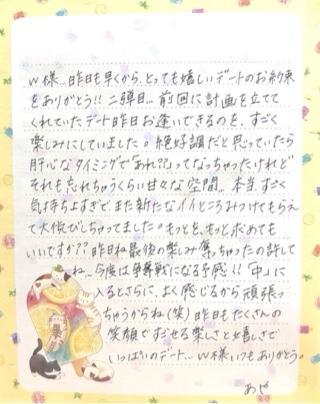 W様…昨日も早くから、とっても嬉しいデートのお約束
をありがとう!! 二弾目… 前回に計画を立てて
くれていたデート昨日お逢いできるのを、すごく
楽しみにしていました。絶好調だと思っていたら
肝心なタイミングで「あれ??」ってなっちゃったけれど
それも忘れちゃうくらい甘々な空間…本当すごく
気持ちよすぎて また新たなイイところみつけてもらえ
て大悦びしちゃってました。もっと、もっと求めても
いいですか?? 昨日ね最後の楽しみ奪っちゃったの許して
ね…今度は争奪戦になる予感!!「中」に
入るとさらに、よく感じるから頑張っ
ちゃうからね(笑) 昨日もたくさんの
笑顔ですごせる楽しさと嬉しさで
いっぱいのデート…W様いつもありがとう。
あや